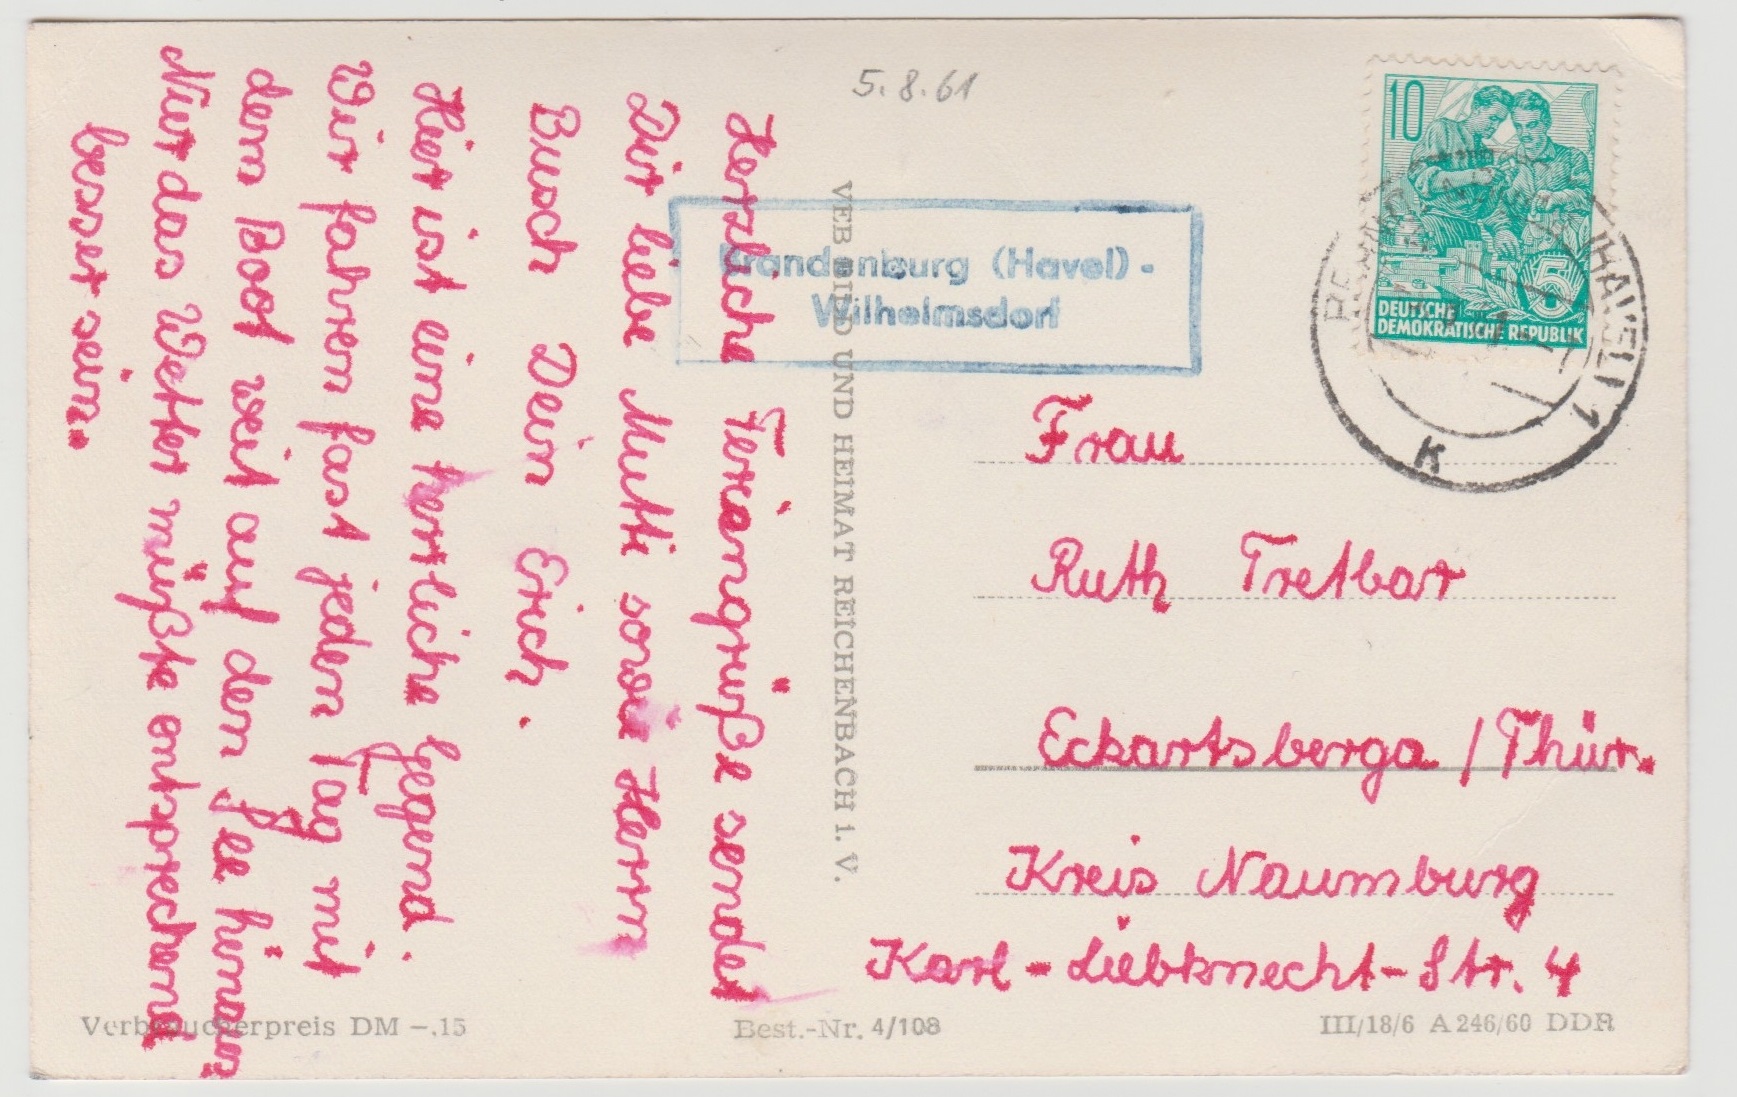 5.8.61
Herzliche Feriengrüße sendet
Dir liebe Mutti sowie Herrn
Busch Dein Erich.
Hier ist eine herrliche Gegend.
Wir fahren fast jeden Tag mit
dem Boot weit auf den See hinaus
Nur das Wetter müßte entsprechend
besser sein.
VEB BILD UND HEIMAT REICHENBACH i. V.
Brandenburg (Havel) -
Wilhelmsdorf
10
5
DEUTSCHE
DEMOKRATISCHE REPUBLIK
(HAVEL) 1
K
Frau
Ruth Tretbar
Eckartsberga / Thür.
Kreis Naumburg
Karl - Liebknecht - Str. 4
Verbraucherpreis DM -.15
Best.-Nr. 4/108
III/18/6 A 246/60 DDR